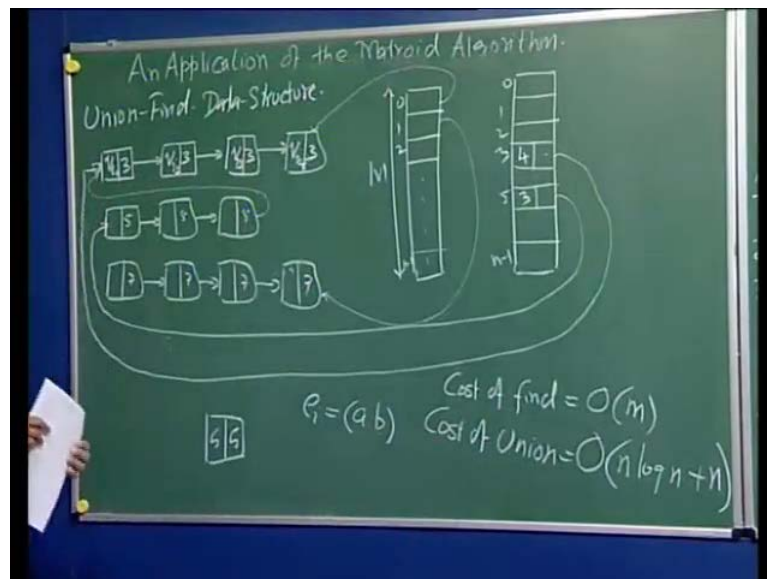 An Application of the Matroid Algorithm.
Union-Find Data-Structure.
3 3 3 3
5
7 7 7 7
0
1
2
|V|
0
1
2
3 4
5 3
n-1
5 5
e₁=(a b)
Cost of find = O(m)
Cost of Union=O(n log n + n)